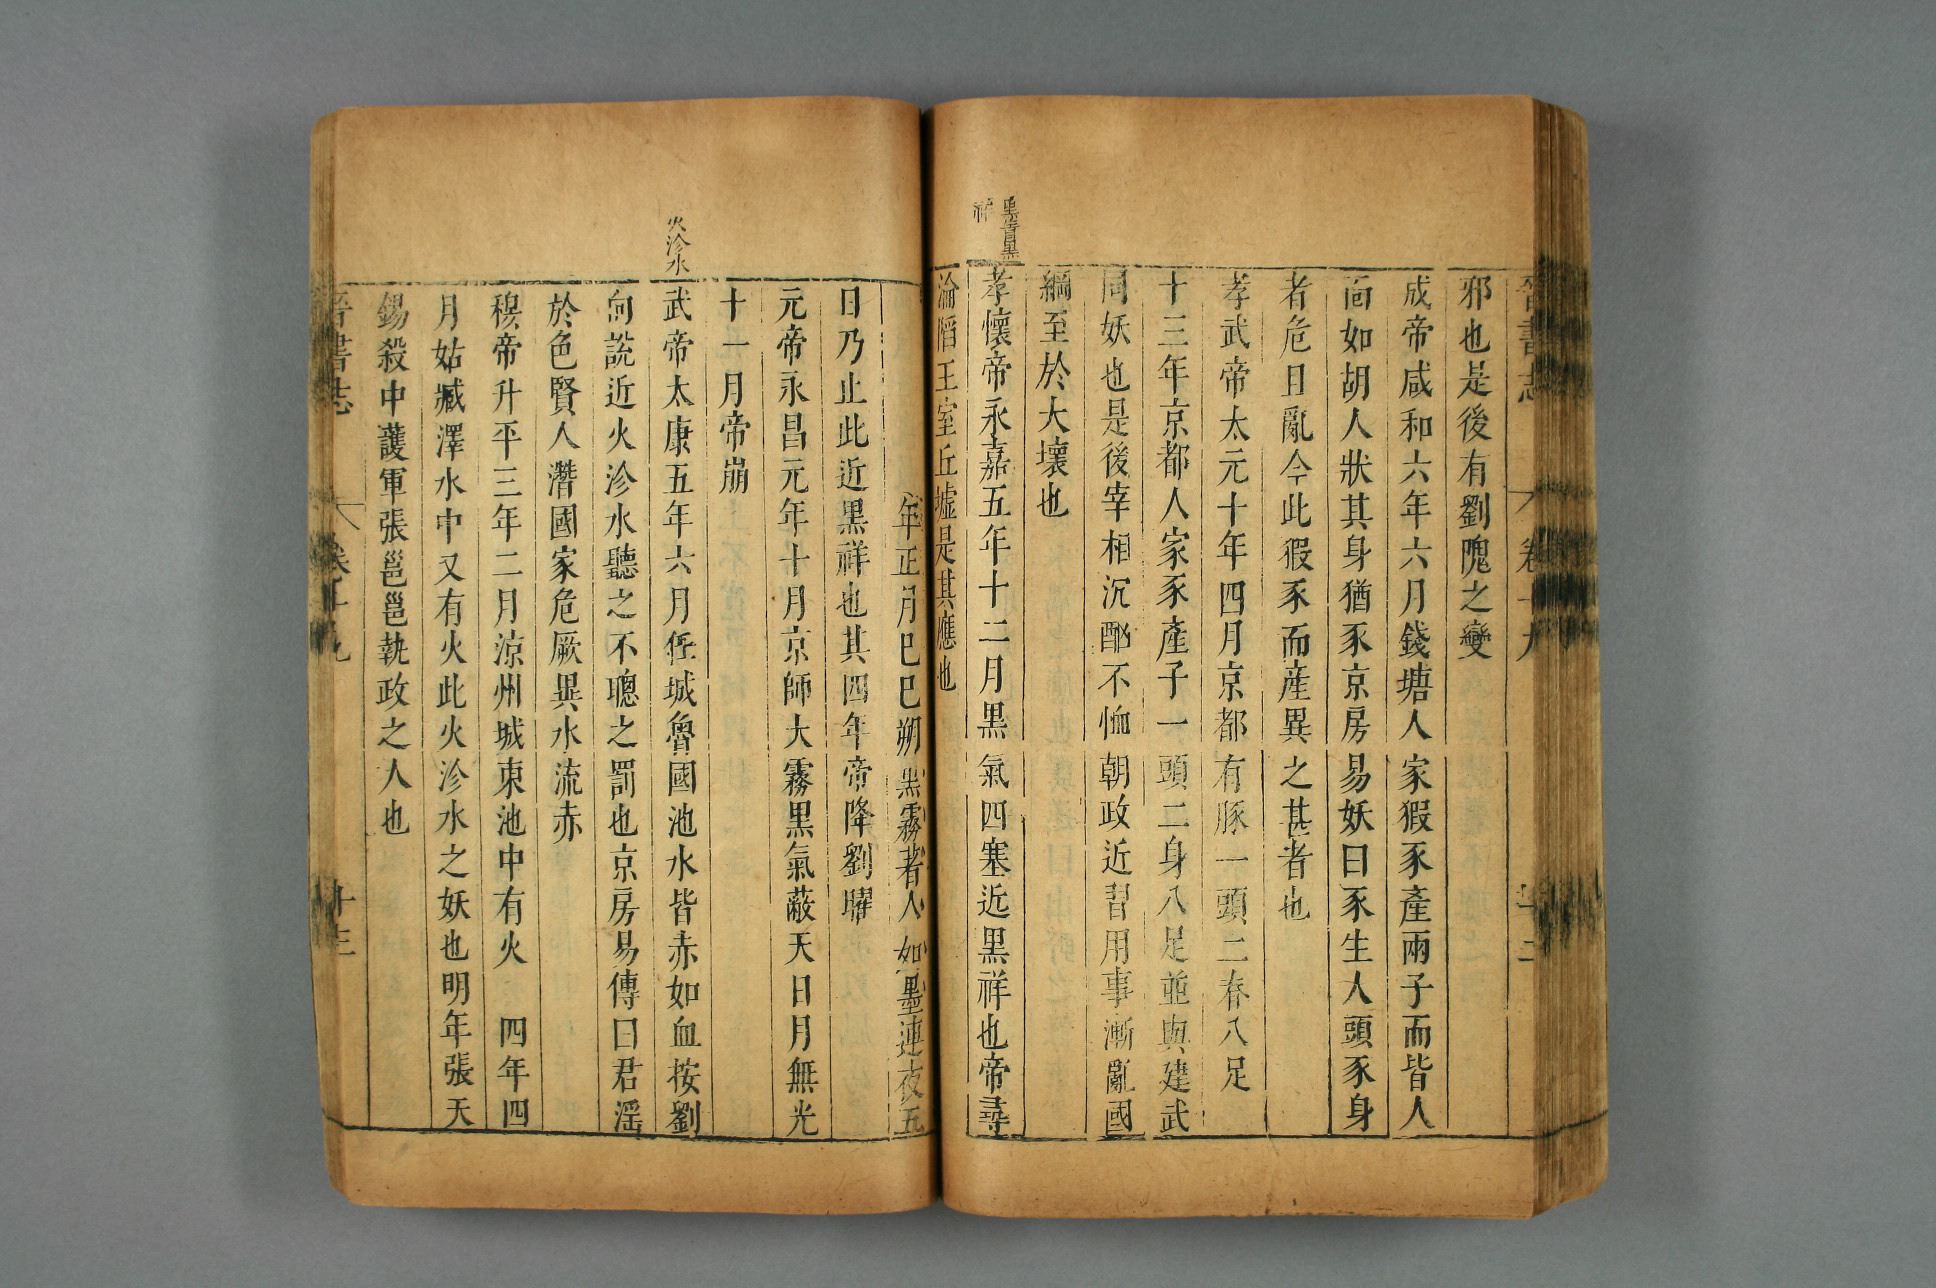 晉書志 卷二十九 十二
邪也是後有劉隗之變
成帝咸和六年六月錢塘人家猳豕產兩子而皆人
面如胡人狀其身猶豕京房易妖曰豕生人頭豕身
者危且亂今此猳豕而産異之甚者也
孝武帝太元十年四月京都有豚一頭二脊八足
十三年京都人家豕產子一頭二身八足並與建武
同妖也是後宰相沉酗不恤朝政近習用事漸亂國
綱至於大壞也
黑眚黑
祥
孝懷帝永嘉五年十二月黑氣四塞近黑祥也帝尋
淪陷王室丘墟是其應也
年正月己巳朔黑霧著人如墨連夜五
日乃止此近黑祥也其四年帝降劉曜
元帝永昌元年十月京師大霧黑氣蔽天日月無光
十一月帝崩
火沴水
武帝太康五年六月任城魯國池水皆赤如血按劉
向説近火沴水聽之不聰之罰也京房易傳曰君滛
於色賢人潛國家危厥異水流赤
穆帝升平三年二月涼州城東池中有火 四年四
月姑臧澤水中又有火此火沴水之妖也明年張天
錫殺中護軍張邕邕執政之人也
晉書志 卷二十九 十三